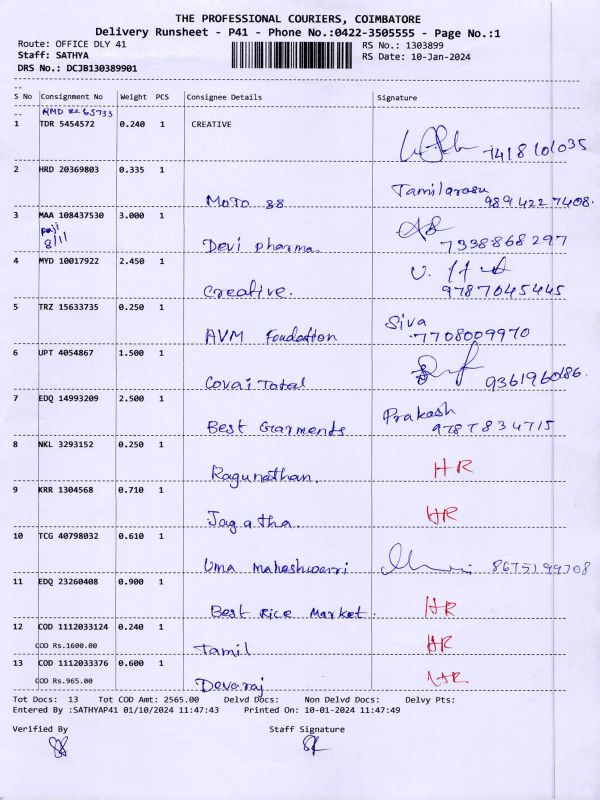 THE PROFESSIONAL COURIERS, COIMBATORE
Delivery Runsheet - P41 - Phone No.:0422-3505555 - Page No.:1
Route: OFFICE DLY 41 RS No.: 1303899
Staff: SATHYA RS Date: 10-Jan-2024
DRS No.: DCJB130389901
S No Consignment No Weight PCS Consignee Details Signature
RMD 2265733
1 TDR 5454572 0.240 1 CREATIVE
7418101035
2 HRD 20369803 0.335 1 Tamilarasu
Moto 88 9894227408.
3 MAA 108437530 3.000 1
8/11 Devi pharma. 7338868297
4 MYD 10017922 2.450 1
Creative. 9787045445
5 TRZ 15633735 0.250 1 Siva
AVM Foudation 7708009970
6 UPT 4054867 1.500 1
Covai Total 9361960186.
7 EDQ 14993209 2.500 1 Prakash
Best Garments 9787834715
8 NKL 3293152 0.250 1 HR
Ragunathan.
9 KRR 1304568 0.710 1 HR
Jagatha.
10 TCG 40798032 0.610 1
Uma maheshwarri 8675199708
11 EDQ 23260408 0.900 1
Best Rice Market. HR
12 COD 1112033124 0.240 1 HR
COD Rs.1600.00 Tamil
13 COD 1112033376 0.600 1 HR
COD Rs.965.00 Devaraj
Tot Docs: 13 Tot COD Amt: 2565.00 Delvd Docs: Non Delvd Docs: Delvy Pts:
Entered By :SATHYAP41 01/10/2024 11:47:43 Printed On: 10-01-2024 11:47:49
Verified By Staff Signature